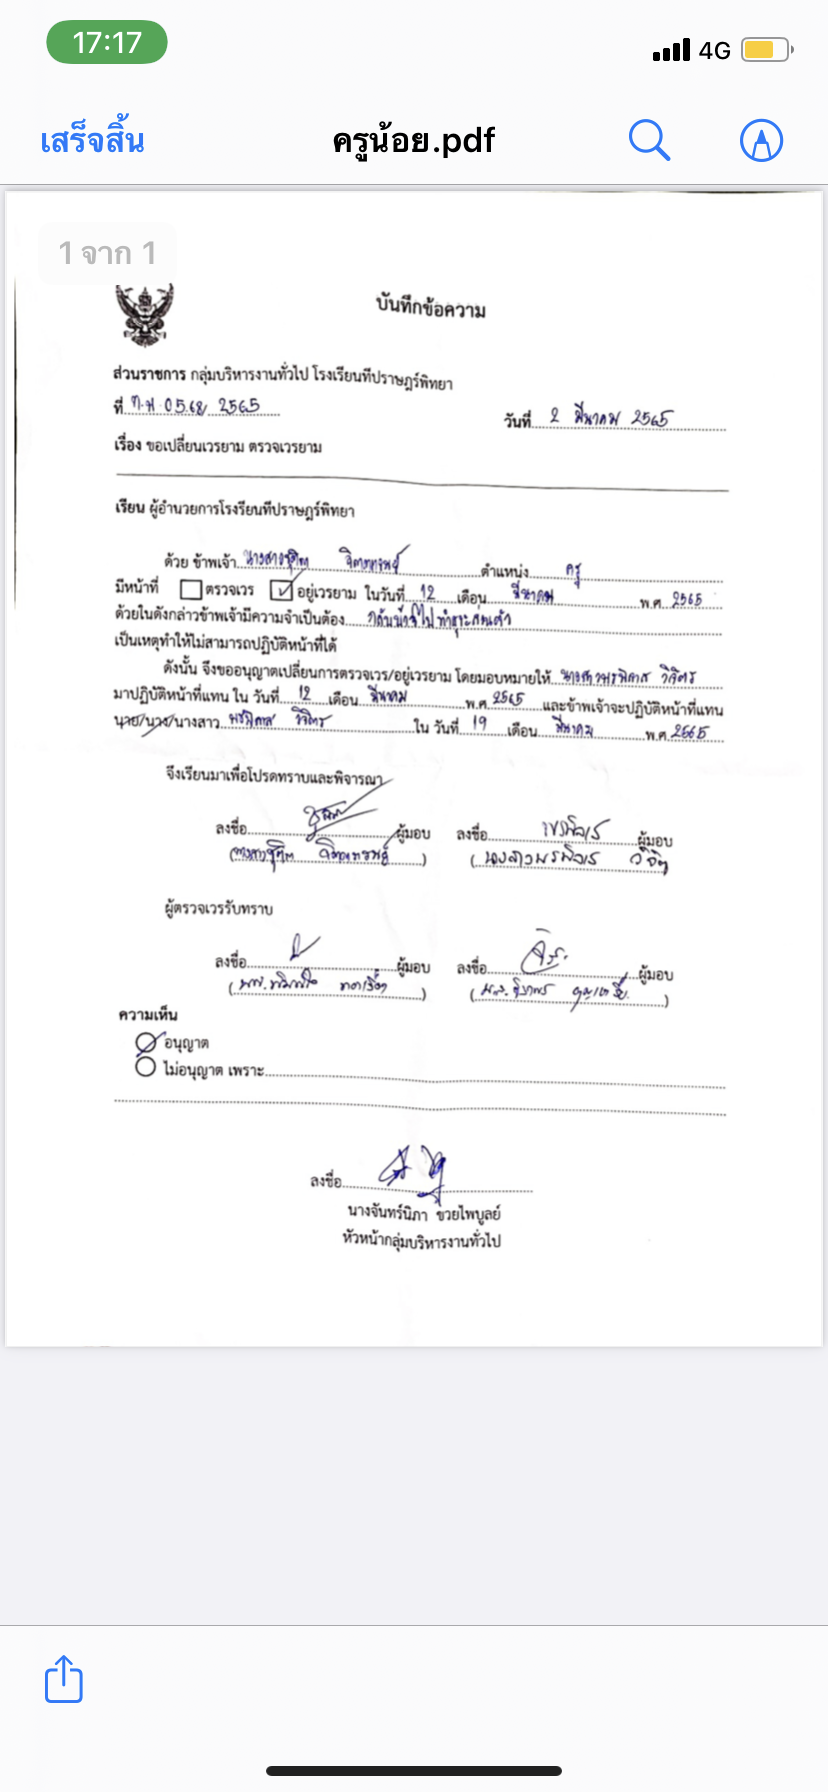 17:17
4G
เสร็จสิ้น
ครูน้อย.pdf
1 จาก 1
บันทึกข้อความ
ส่วนราชการ กลุ่มบริหารงานทั่วไป โรงเรียนทีปราษฎร์พิทยา
ที่ ท.ฟ 0568/ 2565
วันที่ 2 มีนาคม 2565
เรื่อง ขอเปลี่ยนเวรยาม ตรวจเวรยาม
เรียน ผู้อำนวยการโรงเรียนทีปราษฎร์พิทยา
ด้วย ข้าพเจ้า นางสาว ตำแหน่ง ครู
มีหน้าที่ ตรวจเวร อยู่เวรยาม ในวันที่ 12 เดือน มีนาคม พ.ศ 2565
ด้วยในดังกล่าวข้าพเจ้ามีความจำเป็นต้อง
เป็นเหตุทำให้ไม่สามารถปฏิบัติหน้าที่ได้
ดังนั้น จึงขออนุญาตเปลี่ยนการตรวจเวร/อยู่เวรยาม โดยมอบหมายให้ นางสาว วิจิตร
มาปฏิบัติหน้าที่แทน ใน วันที่ 12 เดือน มีนาคม พ.ศ. 2565 และข้าพเจ้าจะปฏิบัติหน้าที่แทน
นาย/นาง/นางสาว วิจิตร ใน วันที่ 19 เดือน มีนาคม พ.ศ. 2565
จึงเรียนมาเพื่อโปรดทราบและพิจารณา
ลงชื่อ ผู้มอบ ลงชื่อ ผู้มอบ
( ) (นางสาว )
ผู้ตรวจเวรรับทราบ
ลงชื่อ ผู้มอบ ลงชื่อ ผู้มอบ
( ) ( )
ความเห็น
อนุญาต
ไม่อนุญาต เพราะ
ลงชื่อ
นางจันทร์นิภา ขวยไพบูลย์
หัวหน้ากลุ่มบริหารงานทั่วไป